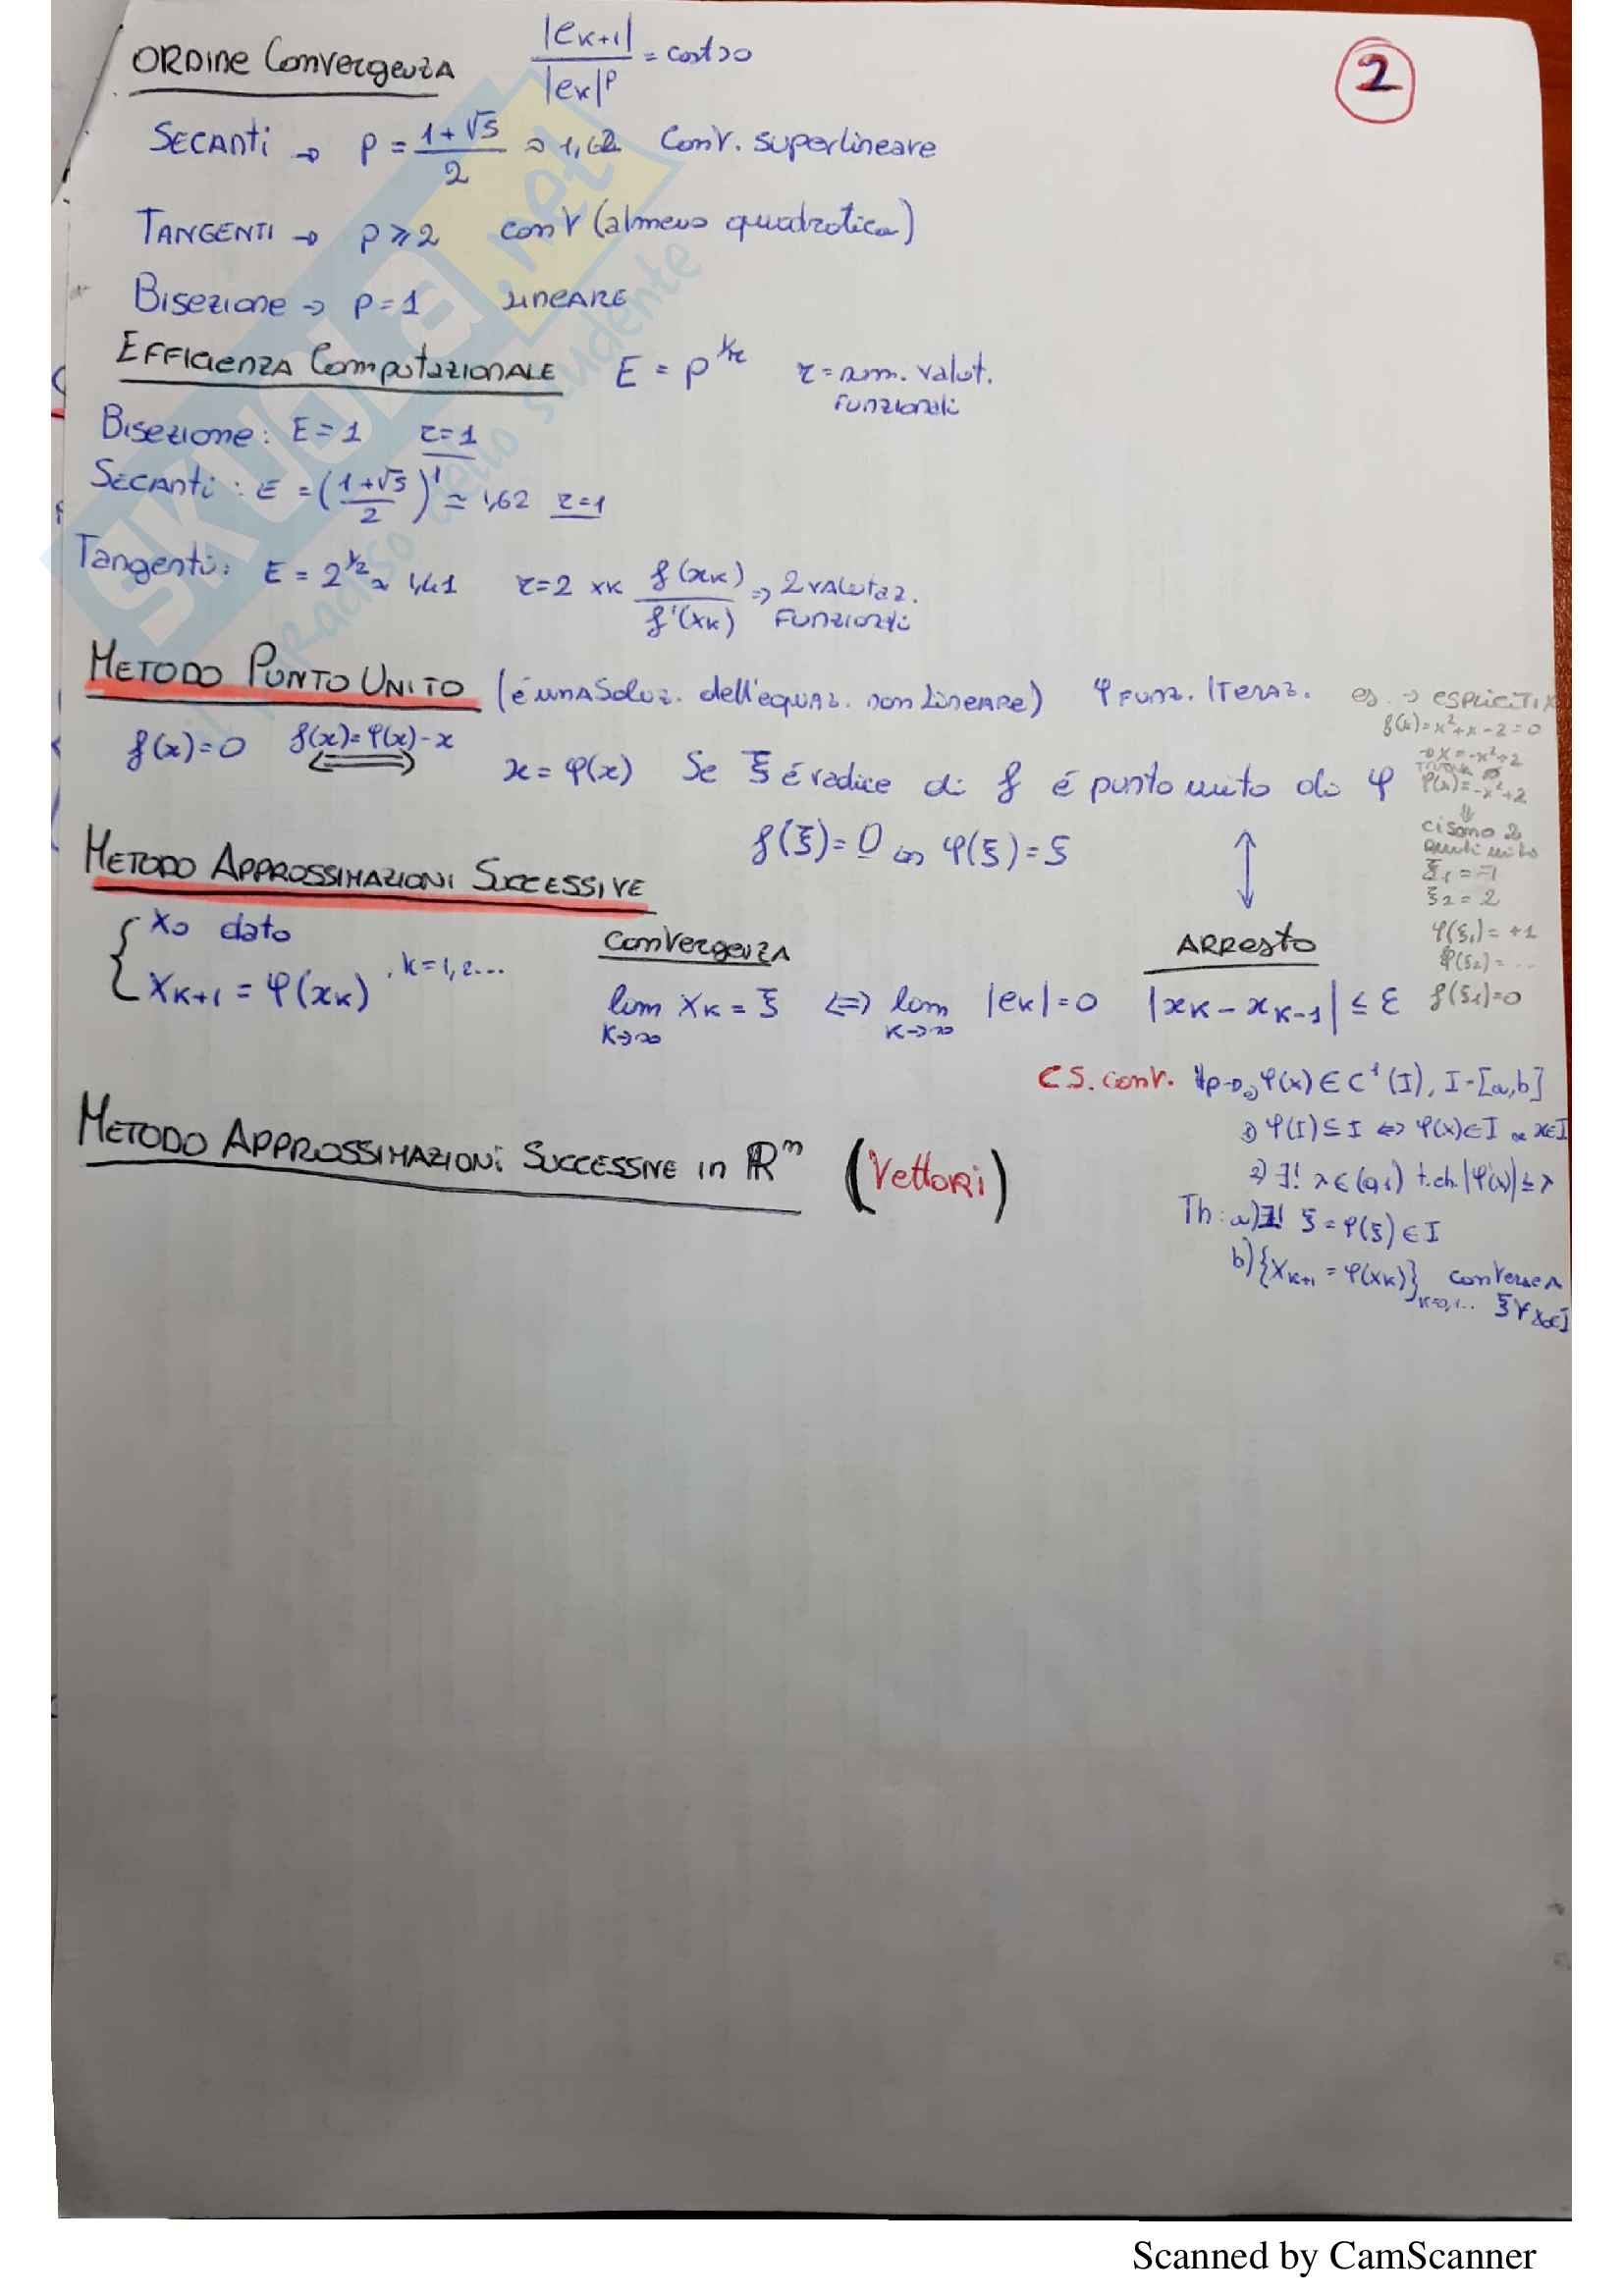 ORDine Convergenza |eK+1| / |eK|^p = cost>0
2
SECANTi → p = (1+√5)/2 ≃ 1,62 Conv. superlineare
TANGENTI → p ≥ 2 conv (almeno quadratica)
Bisezione → p=1 LINEARE
EFFICIENZA COMPUTAZIONALE E = p^1/r r = num. valut.
FUNZIONALI
Bisezione: E=1 r=1
SECANTi: E = ((1+√5)/2)^1 ≃ 1,62 r=1
Tangenti: E = 2^1/2 ≃ 1,41 r=2 xK f(xK)/f'(xK) ⇒ 2 VALUTAZ.
FUNZIONALI
METODO PUNTO UNITO (é UNA Soluz. dell'equaz. non LineARE) φ FUNZ. ITERAZ.
es. → ESPLICITI x
f(x)=x²+x-2=0
→ x=-x²+2
φ(x)=-x²+2
⇓
ci sono 2
punti unito
ξ1 = -1
ξ2 = 2
φ(ξ1) = +1
φ(ξ2) = ...
f(ξ1)=0
f(x)=0 f(x)=φ(x)-x ⟺ x = φ(x) Se ξ é radice di f é punto unito di φ
f(ξ)=0 ⇔ φ(ξ)=ξ
METODO APPROSSIMAZIONI SUCCESSIVE
{ X0 dato
XK+1 = φ(xK) , k=1,2...
Convergenza
lim K→∞ XK = ξ ⟺ lim K→∞ |eK|=0
ARResto
|xK - xK-1| ≤ ε
C.S. conv. Hp→ φ(x) ∈ C¹(I), I=[a,b]
1) φ(I)⊆I ⟺ φ(x)∈I x∈I
2) ∃! λ∈(0,1) t.ch. |φ'(x)| ≤ λ
Th: a) ∃! ξ = φ(ξ) ∈ I
b) {XK+1 = φ(XK)} K=0,1... converge a
ξ ∀ x0∈I
METODO APPROSSIMAZIONI SUCCESSIVE in ℝⁿ (Vettori)
SKUOLA.net
il paradiso dello studente
Scanned by CamScanner